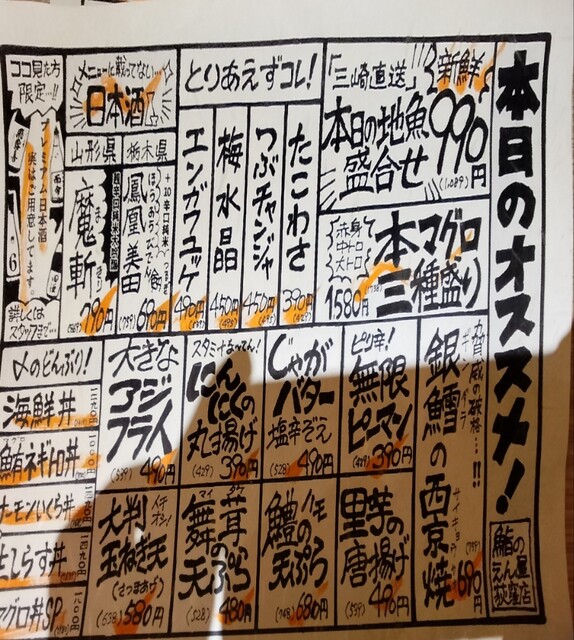 本日のオススメ!
鮨の
えん屋
荻窪店
「三崎直送」
新鮮
本日の地魚
盛合せ
990円
(1,089)
赤身
中トロ
大トロ
本マグロ
三種盛り
1580円
とりあえずコレ!
たこわさ
390円
つぶチャンジャ
450円
梅水晶
450円
エンガワユッケ
490円
メニューに載ってない…
日本酒
栃木県
山形県
+10辛口純米
鳳凰美田
690円
(759)
魔斬
790円
(869)
ココ見た方
限定…!!
プレミアム日本酒
実はご用意してます。
詳しくは
スタッフまで…
銀鱈の西京焼
ギンダラ
サイキョウヤキ
690円
(759)
ピリ辛!
無限
ピーマン
390円
(429)
じゃが
バター
塩辛ぞえ
490円
(528)
にん
にくの
丸揚げ
390円
(429)
大きな
アジ
フライ
490円
(539)
里芋の
唐揚げ
490円
(539)
鱧の
ハモ
天ぷら
680円
(748)
舞茸の
天ぷら
480円
(528)
イチオシ!
大判
玉ねぎ天
(さつまあげ)
580円
(638)
〆のどんぶり!
海鮮丼
鮪ネギトロ丼
サーモンいくら丼
生しらす丼
マグロ丼SP